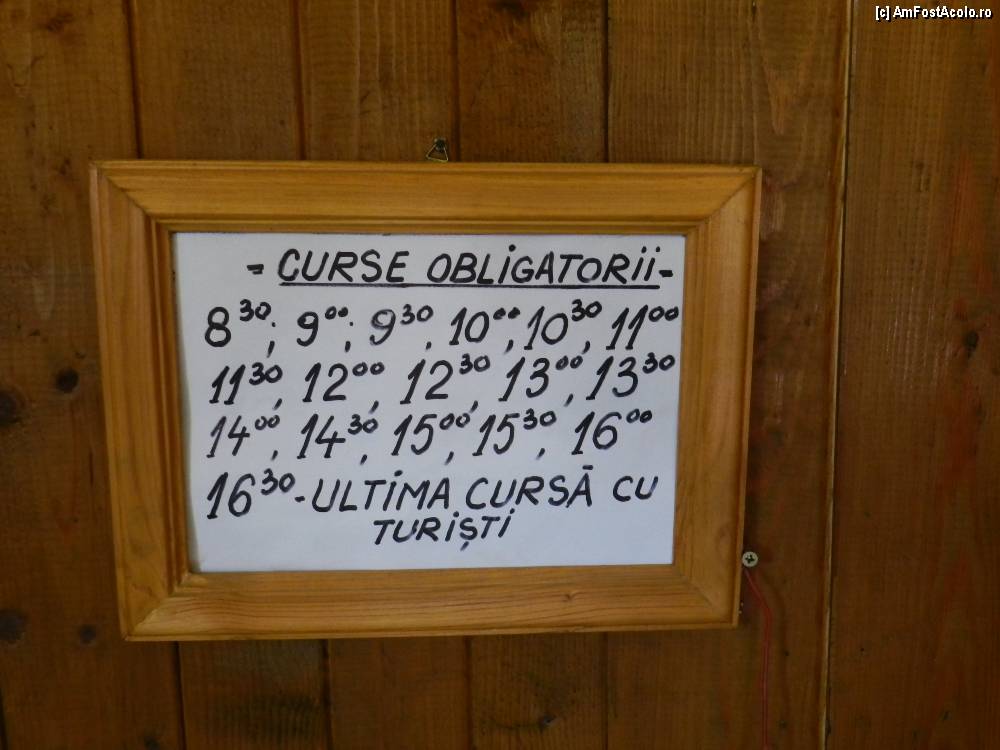 [c] AmFostAcolo.ro
- CURSE OBLIGATORII -
8³⁰; 9⁰⁰; 9³⁰, 10⁰⁰, 10³⁰, 11⁰⁰
11³⁰, 12⁰⁰, 12³⁰, 13⁰⁰, 13³⁰
14⁰⁰, 14³⁰, 15⁰⁰, 15³⁰, 16⁰⁰
16³⁰ - ULTIMA CURSĂ CU
TURIȘTI